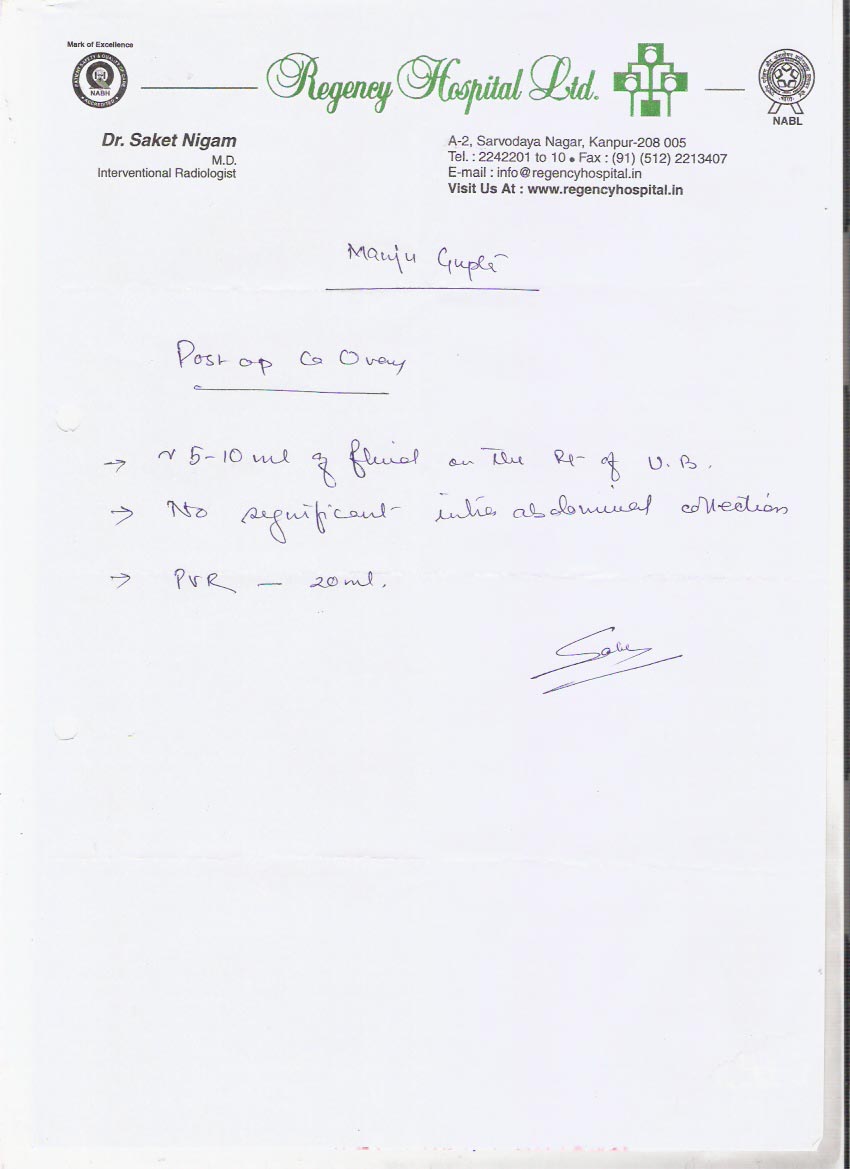 Mark of Excellence
NABH
ACCREDITED
Regency Hospital Ltd.
NABL
Dr. Saket Nigam
M.D.
Interventional Radiologist
A-2, Sarvodaya Nagar, Kanpur-208 005
Tel. : 2242201 to 10 • Fax : (91) (512) 2213407
E-mail : info@regencyhospital.in
Visit Us At : www.regencyhospital.in
Manju Gupta
Post op Ca Ovary
→ ~ 5-10 ml of fluid on the Rt of U.B.
→ No significant intra abdominal collection
→ PVR — 20ml.